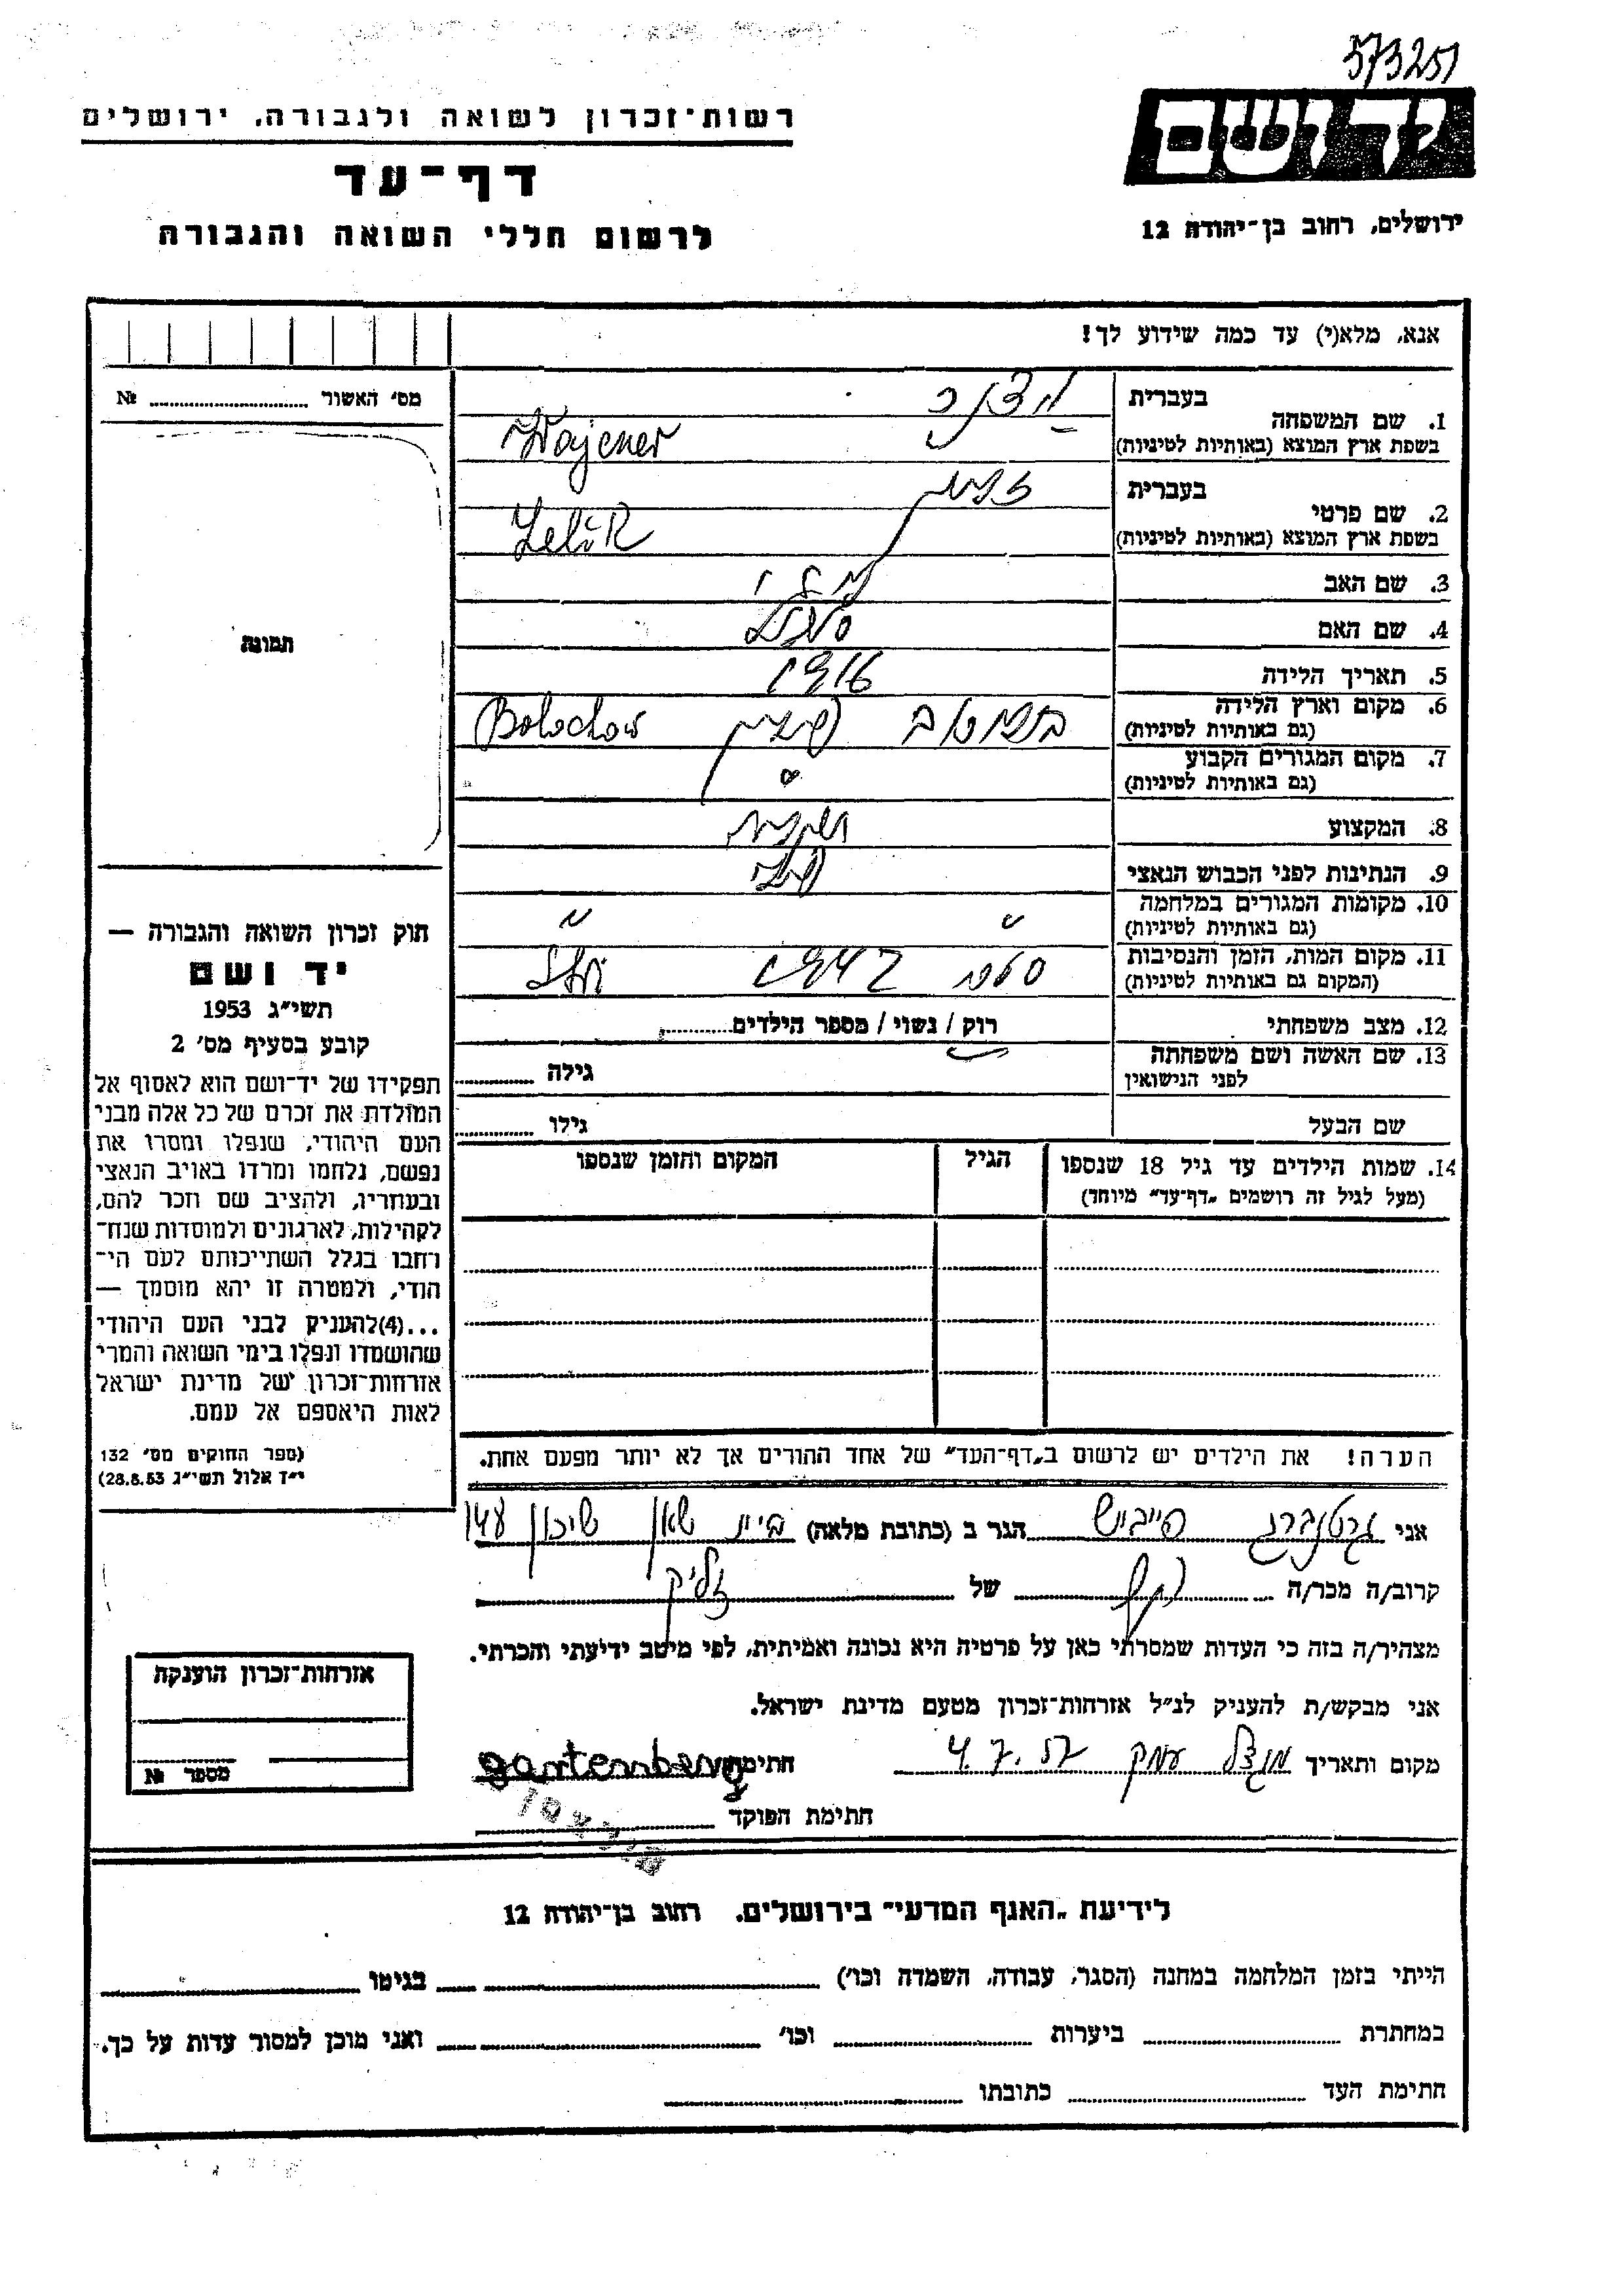 573251
יד ושם
רשות־זכרון לשואה ולגבורה, ירושלים
דף־עד
לרשום חללי השואה והגבורה
ירושלים, רחוב בן־יהודה 12
אנא, מלא(י) עד כמה שידוע לך!
מס' האשור № 
תמונה
1. שם המשפחה בעברית
בשפת ארץ המוצא (באותיות לטיניות) Wajener
2. שם פרטי בעברית
בשפת ארץ המוצא (באותיות לטיניות) Zelik
3. שם האב
4. שם האם
5. תאריך הלידה 1916
6. מקום וארץ הלידה
(גם באותיות לטיניות) Bolochow
7. מקום המגורים הקבוע
(גם באותיות לטיניות)
8. המקצוע
9. הנתינות לפני הכבוש הנאצי
10. מקומות המגורים במלחמה
(גם באותיות לטיניות) " "
11. מקום המות, הזמן והנסיבות
(המקום גם באותיות לטיניות) 1942
12. מצב משפחתי רוק / נשוי / מספר הילדים
13. שם האשה ושם משפחתה
לפני הנישואין גילה
שם הבעל גילו
14. שמות הילדים עד גיל 18 שנספו
(מעל לגיל זה רושמים "דף־עד" מיוחד)
הגיל
המקום והזמן שנספו
חוק זכרון השואה והגבורה —
יד ושם
תשי"ג 1953
קובע בסעיף מס' 2
תפקידו של יד־ושם הוא לאסוף אל
המולדת את זכרם של כל אלה מבני
העם היהודי, שנפלו ומסרו את
נפשם, נלחמו ומרדו באויב הנאצי
ובעוזריו, ולהציב שם וזכר להם,
לקהילות, לארגונים ולמוסדות שנח־
רחבו בגלל השתייכותם לעם הי־
הודי, ולמטרה זו יהא מוסמך —
...(4)להעניק לבני העם היהודי
שהושמדו ונפלו בימי השואה והמרי
אזרחות־זכרון של מדינת ישראל
לאות היאספם אל עמם.
(ספר החוקים מס' 132
י"ד אלול תשי"ג 28.8.53)
הערה! את הילדים יש לרשום ב"דף־העד" של אחד ההורים אך לא יותר מפעם אחת.
אני גרטנברג פייביש הגר ב (כתובת מלאה) בית שאן שיכון
קרוב/ה מכר/ה של זליק
מצהיר/ה בזה כי העדות שמסרתי כאן על פרטיה היא נכונה ואמיתית, לפי מיטב ידיעתי והכרתי.
אני מבקש/ת להעניק לנ"ל אזרחות־זכרון מטעם מדינת ישראל.
מקום ותאריך מגדל עמק 4.7.57 חתימה gartenberg
חתימת הפוקד
אזרחות־זכרון הוענקה
מספר №
לידיעת "האגף המדעי" בירושלים, רחוב בן־יהודה 12
הייתי בזמן המלחמה במחנה (הסגר, עבודה, השמדה וכו') בגיטו
במחתרת ביערות וכו' ואני מוכן למסור עדות על כך.
חתימת העד כתובתו